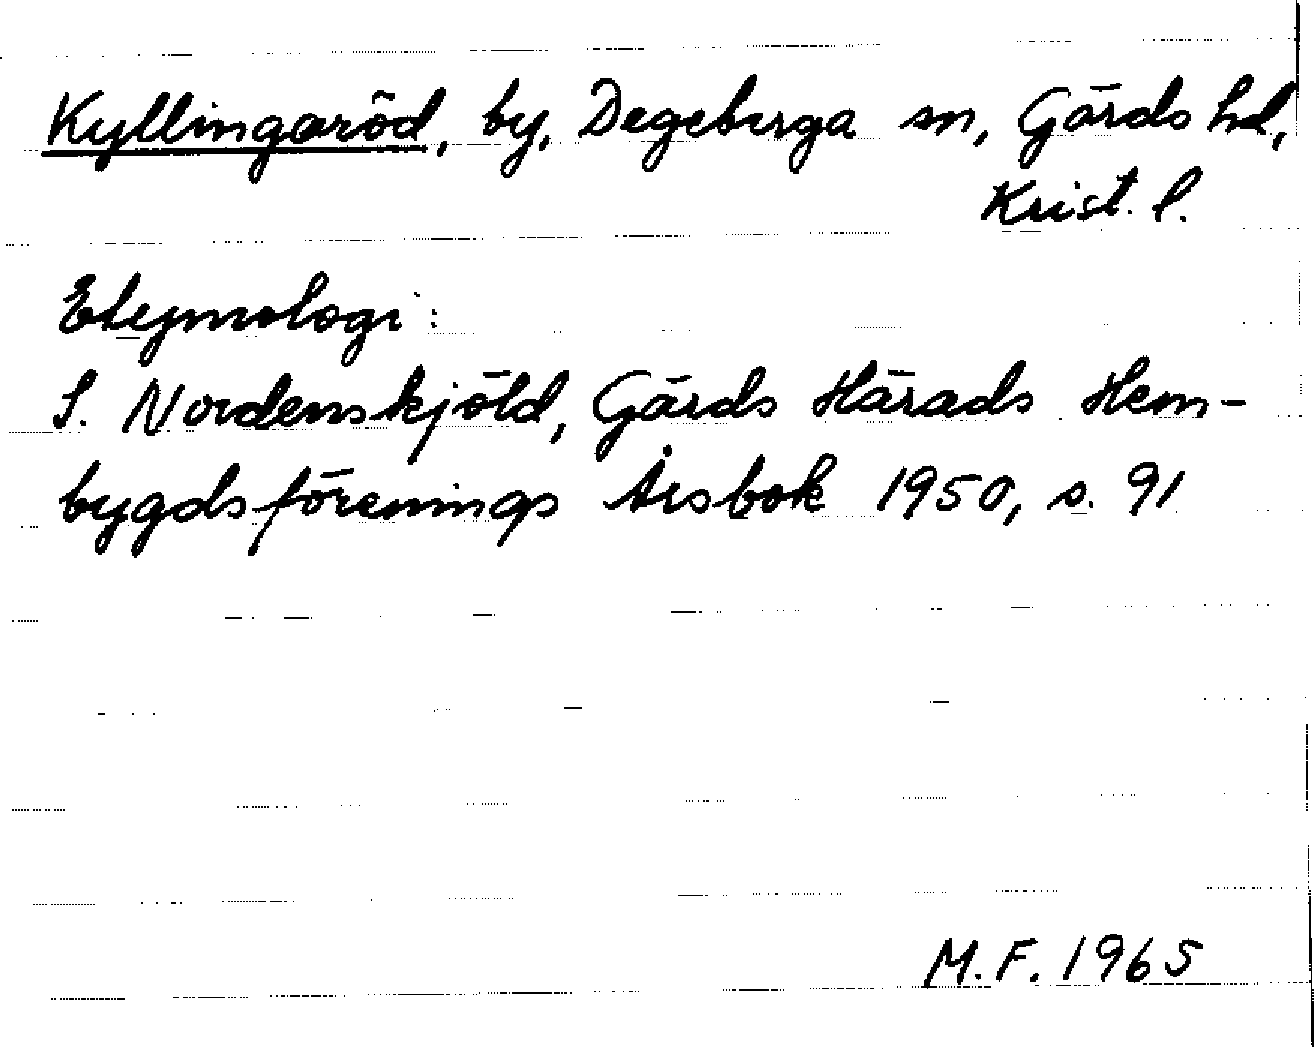 Kyllingaröd, by, Degeberga sn, Gärds hd,
Krist. l.
Etymologi:
S. Nordenskjöld, Gärds Härads Hem-
bygdsförenings Årsbok 1950, s. 91
M.F. 1965